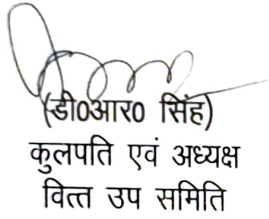 (डी0आर0 सिंह)
कुलपति एवं अध्यक्ष
वित्त उप समिति